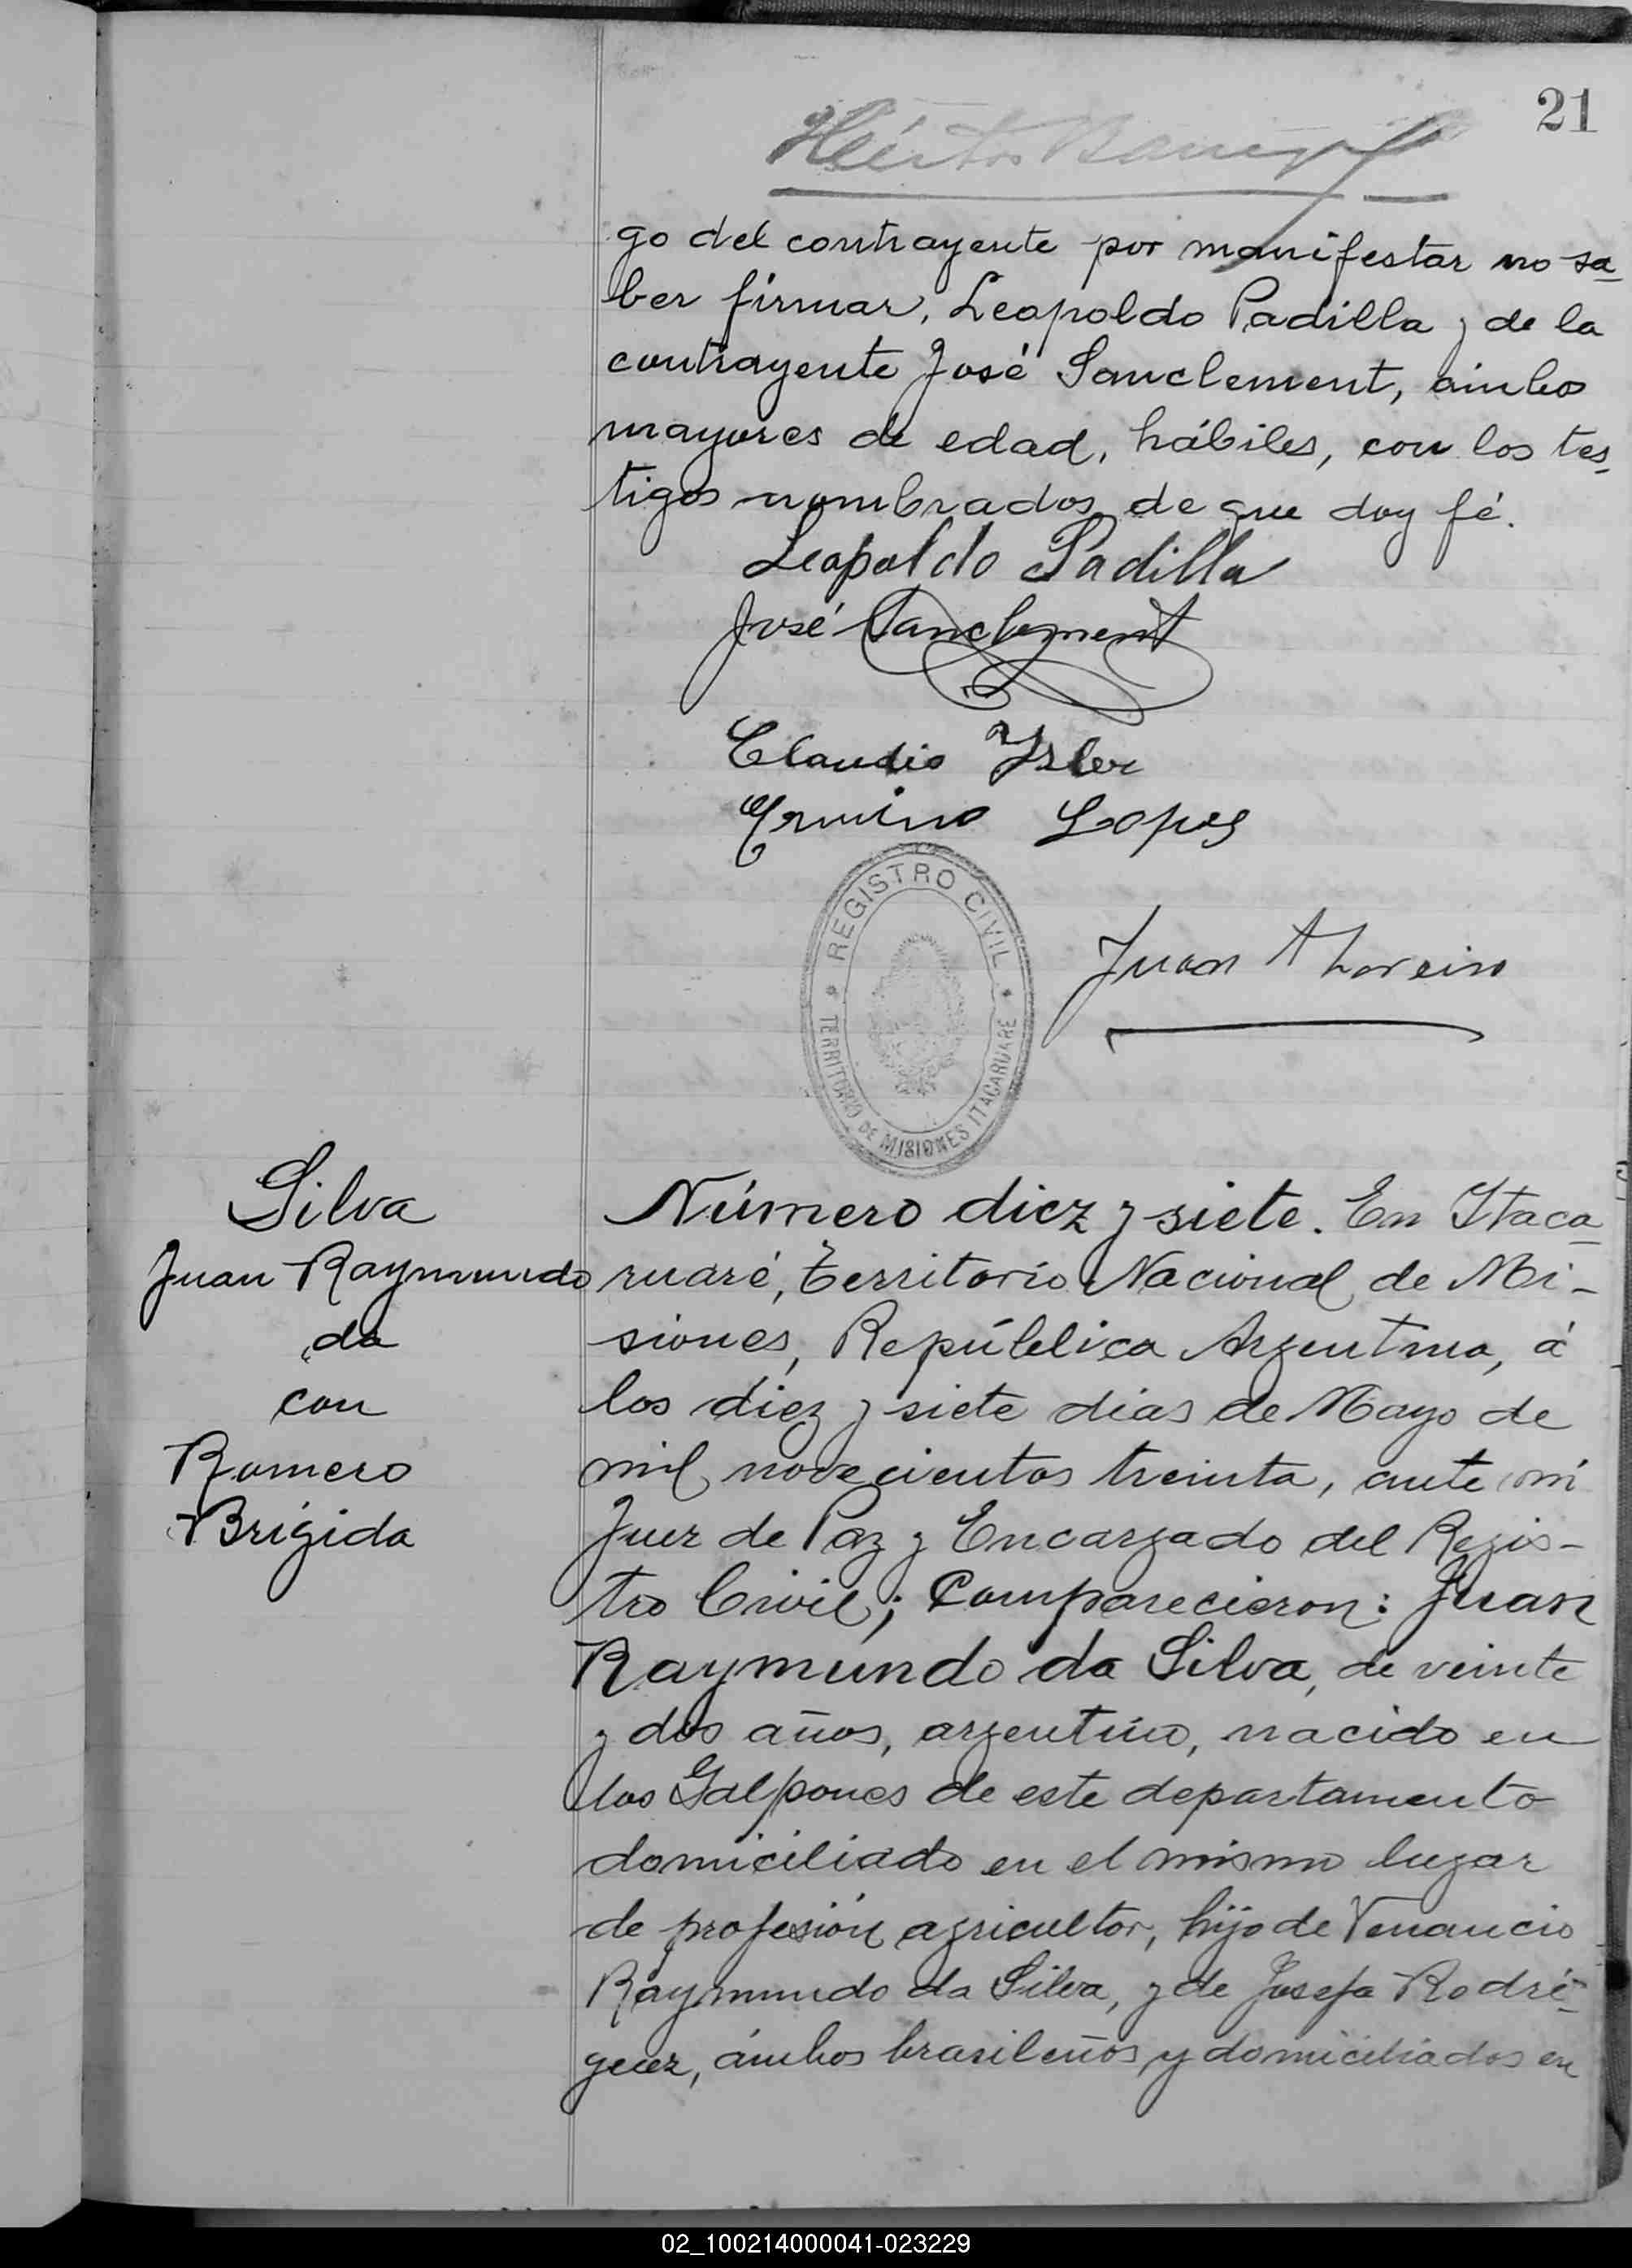 21
Héctor
go del contrayente por manifestar no sa
ber firmar, Leopoldo Padilla y de la
contrayente José Sanclement, ámbos
mayores de edad, hábiles, con los tes
tigos nombrados de que doy fé.
Leopoldo Padilla
José Sanclement
Claudio Isler
Ermino Lopes
REGISTRO CIVIL
TERRITORIO DE MISIONES ITACARUARE
Juan A
Silva
Juan Raymundo
da
con
Romero
Brígida
Número diez y siete. En Itaca
ruaré, Territorio Nacional de Mi-
siones, República Argentina, á
los diez y siete días de Mayo de
mil novecientos treinta, ante mí
Juez de Paz y Encargado del Regis-
tro Civil; Comparecieron: Juan
Raymundo da Silva, de veinte
y dos años, argentino, nacido en
los Galpones de este departamento
domiciliado en el mismo lugar
de profesión agricultor, hijo de Venancio
Raymundo da Silva, y de Josefa Rodrí-
guez, ámbos brasileños y domiciliados en
02_100214000041-023229